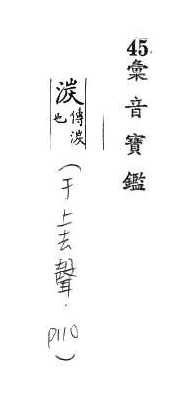 45.彙音寶鑑
淚
傳淚
也
(于上去聲.
P110)